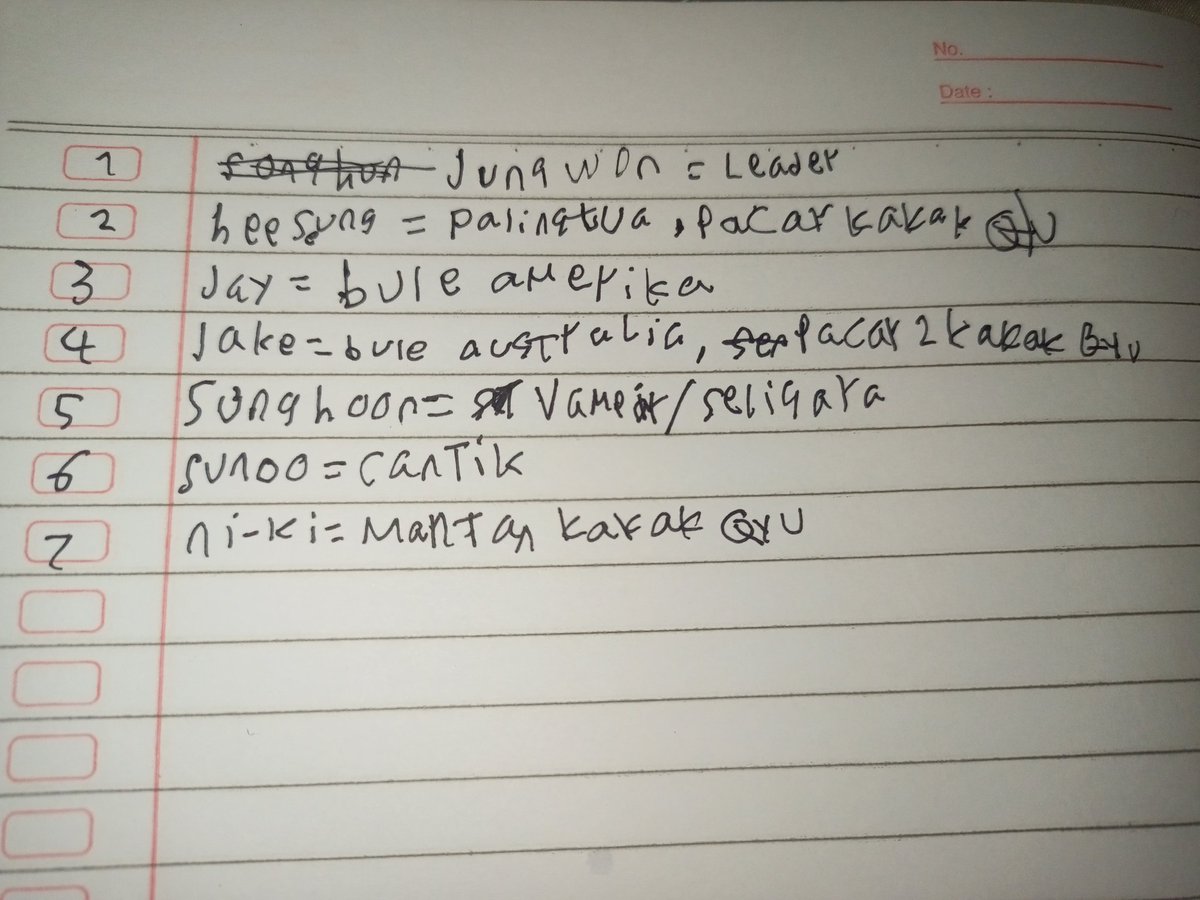 No.
Date :
1 songhon Jungwon = Leader
2 heesung = palingtua, pacar kakak Gyu
3 Jay = bule amerika
4 Jake = bule australia, pacar 2 kakak Gyu
5 Sunghoon = Vampir/seligara
6 sunoo = cantik
7 ni-ki = Mantan kakak Gyu